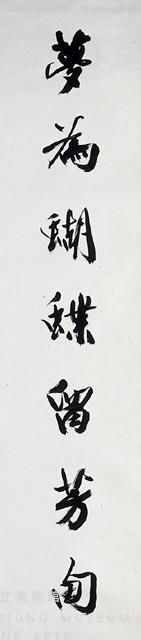 夢為蝴蝶留芳甸
立美術館
SIUNG MUSEUM
NE ARTS